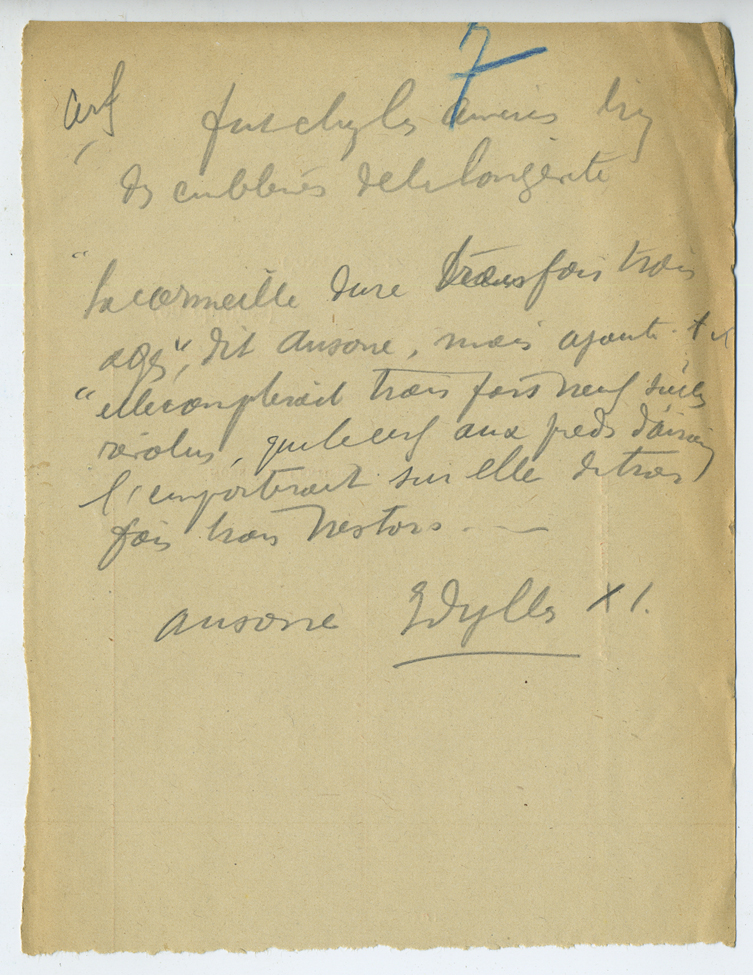 7
cerf fut chez les anciens un
des emblèmes de la longévité
"la corneille dure trois fois trois
ages", dit Ausone, mais ajoute-t-il
"elle compterait trois fois neuf siècles
révolus, que le cerf aux pieds d'airain
l'emporterait sur elle de trois
fois trois Nestors —
Ausone Idylles XI.